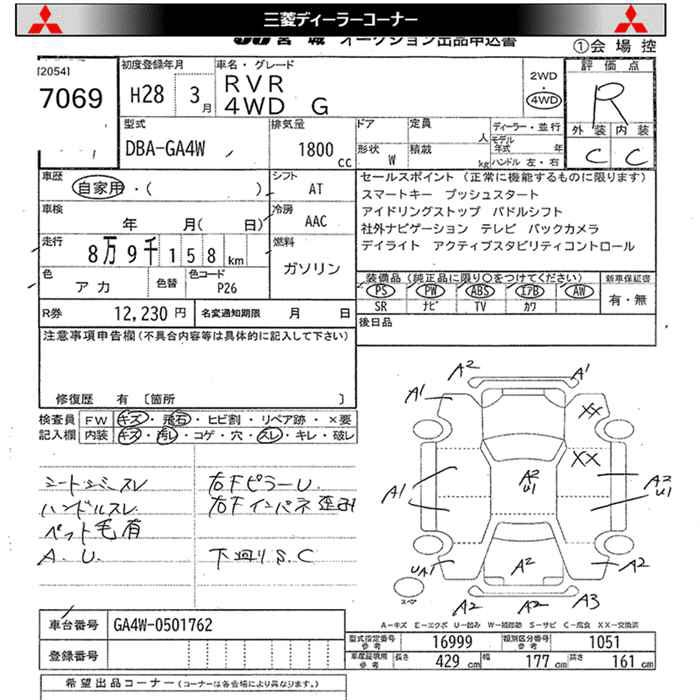 三菱ディーラーコーナー
宮城 オークション出品申込書
①会場控
[2054]
7069
初度登録年月
H28 3月
車名・グレード
RVR
4WD G
2WD
・
4WD
評価点
R
外装 内装
C C
型式
DBA-GA4W
排気量
1800 cc
ドア 定員 人
形状 W 積載 kg
ディーラー・並行
モデル年式 年
ハンドル 左・右
車歴
自家用・( )
シフト
AT
車検
年 月( 日)
冷房
AAC
走行
8万9千158km
燃料
ガソリン
色
アカ
色替
色コード
P26
セールスポイント (正常に機能するものに限ります)
スマートキー プッシュスタート
アイドリングストップ パドルシフト
社外ナビゲーション テレビ バックカメラ
デイライト アクティブスタビリティコントロール
装備品(純正品に限り○をつけてください)
PS PW ABS エアB AW
SR ナビ TV カワ
新車保証書
有・無
R券 12,230円 名変通知期限 月 日
後日品
注意事項申告欄(不具合内容等は具体的に記入して下さい)
修復歴 有 〔箇所 〕
検査員 FW キズ・飛石・ヒビ割・リペア跡・×要
記入欄 内装 キズ・汚レ・コゲ・穴・スレ・キレ・破レ
シートシミスレ
ハンドルスレ
ペット毛有
A.U.
右FピラーU.
右Fインパネ歪み
下廻りS.C
A2
A1 A1
XX
XX
A2
U1
A1
A2
U1
UA1 A2 A2
スペア
A2 A2 A3
A-キズ E-エクボ U-凹み W-補修跡 S-サビ C-腐食 XX-交換済
車台番号 GA4W-0501762
登録番号
型式指定番号 参考 16999 類別区分番号 参考 1051
車庫証明用 参考 長さ 429 cm 幅 177 cm 高さ 161 cm
希望出品コーナー(コーナーは各会場により異なります。)